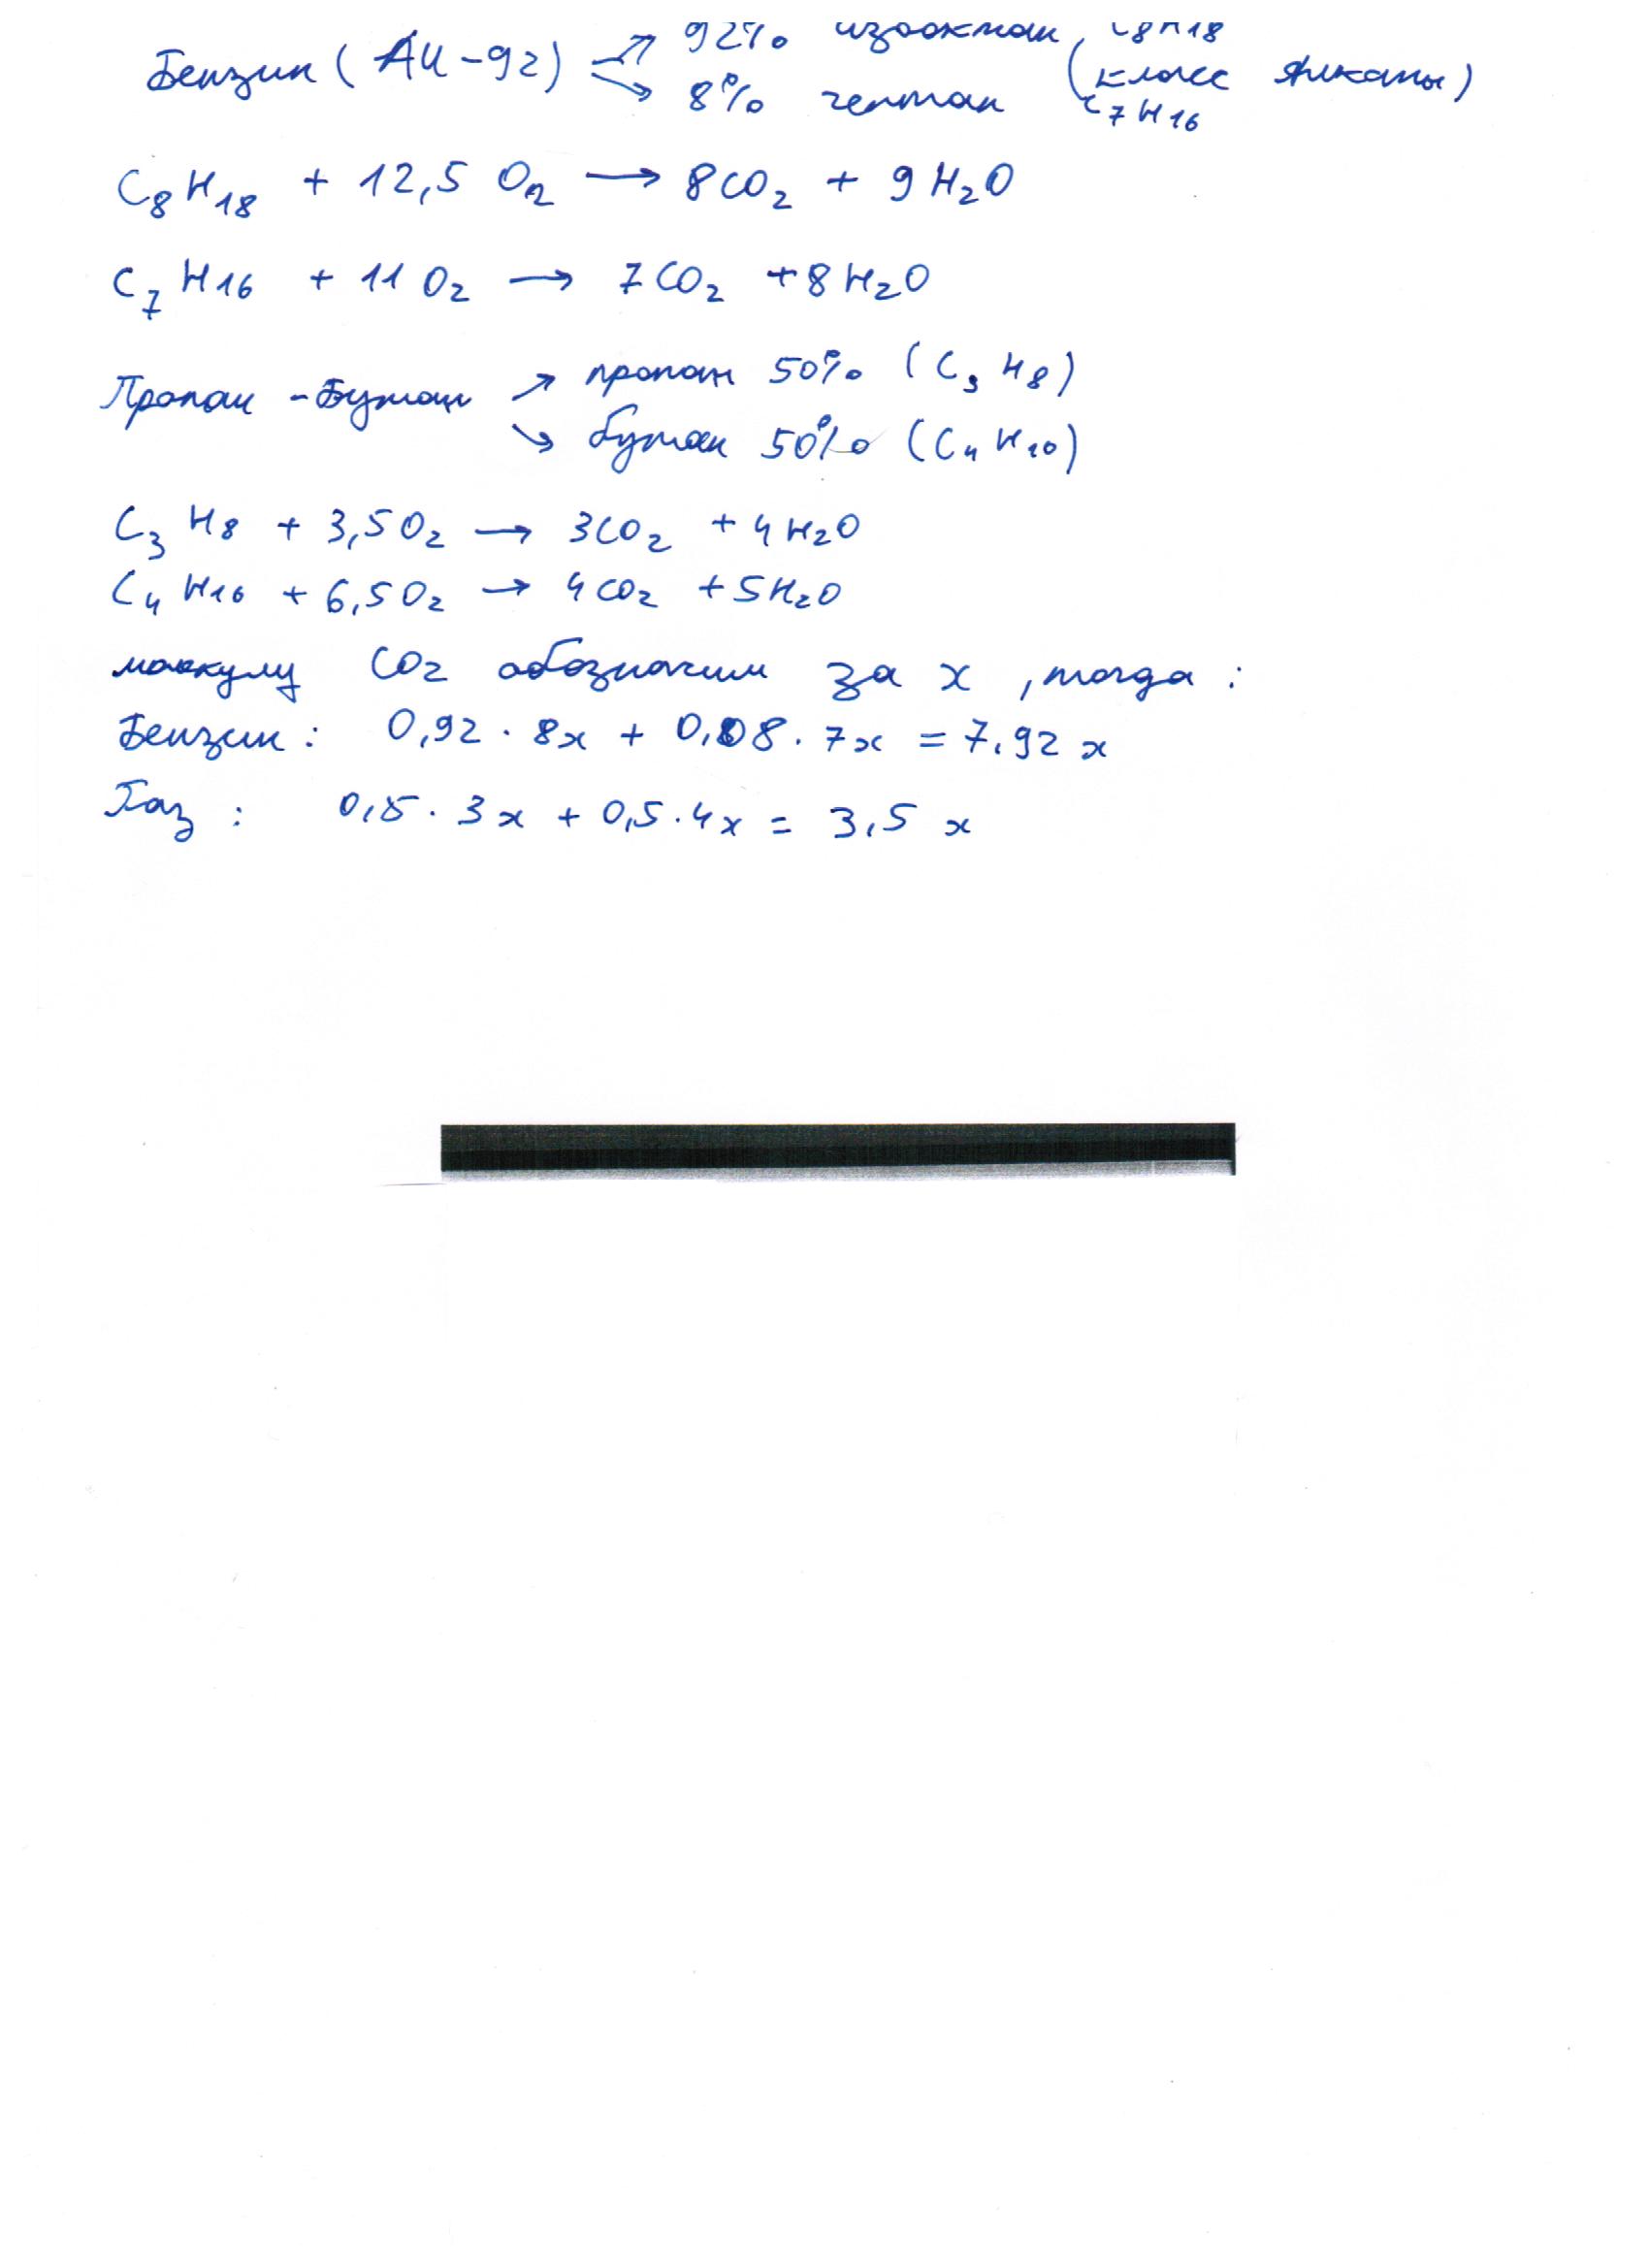 Бензин (АИ-92) → 92% изооктан C8H18
→ 8% гептан C7H16 (класс Алканы)
C8H18 + 12,5 O2 → 8CO2 + 9H2O
C7H16 + 11O2 → 7CO2 + 8H2O
Пропан-Бутан → пропан 50% (C3H8)
→ бутан 50% (C4H10)
C3H8 + 3,5O2 → 3CO2 + 4H2O
C4H10 + 6,5O2 → 4CO2 + 5H2O
молекулу CO2 обозначим за x, тогда:
Бензин: 0,92 · 8x + 0,08 · 7x = 7,92 x
Газ: 0,5 · 3x + 0,5 · 4x = 3,5 x